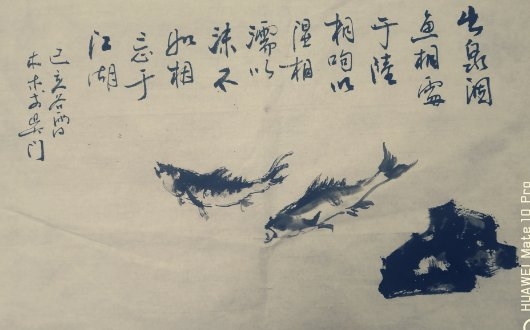 出泉涸
魚相處
于陸
相呴以
湿相
濡以
沫不
如相
忘于
江湖
己亥谷雨日
木木于吴门
HUAWEI Mate 10 Pro